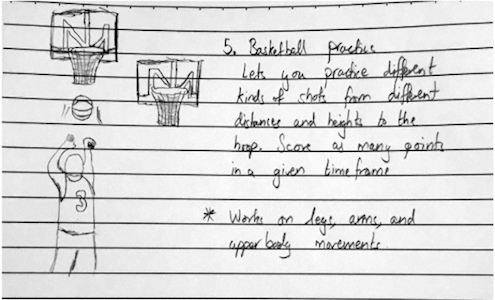 5. Basketball practice
Lets you practice different
kinds of shots from different
distances and heights to the
hoop. Score as many points
in a given timeframe
* Works on legs, arms, and
upper body movements.
3